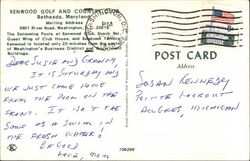 KENWOOD GOLF AND COUNTRY CLUB
Bethesda, Maryland
Mailing Address
5601 River Road, Washington,
The Swimming Pools at Kenwood Club, Snack Bar,
Guest Wing of Club House, and
Kenwood is located only 20 minutes from the
of Washington's Business District and
PM
POST CARD
Address
DEAR SUSIE AND GRANNY,
IT IS SATURDAY AND
WE JUST CAME HOME
FROM THE POOL ON THE
FRONT. IT ISN'T THE
SAME AS A SWIM IN
THE FRESH WATER!
BE GOOD
LOVE, MOM
SUSAN KENNEDY
POINTE LOOKOUT
AU GRES, MICHIGAN
106266